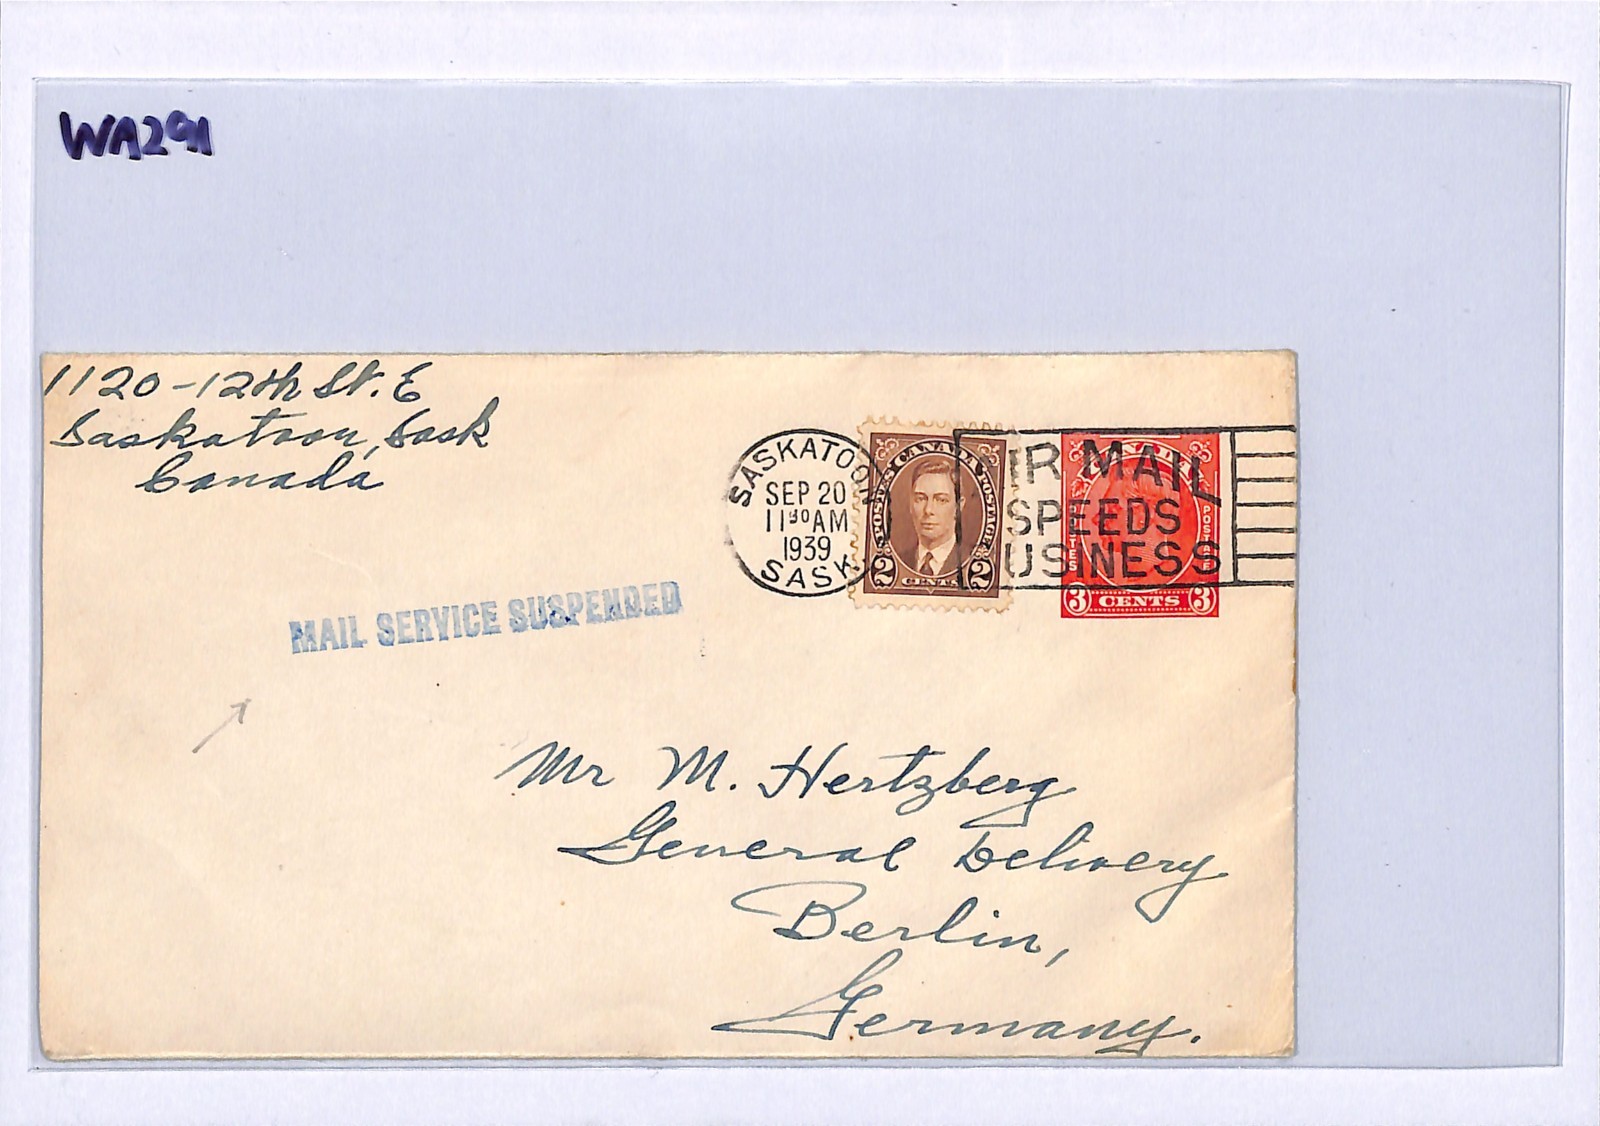 WA291
1120-12th St. E
Saskatoon, Sask
Canada
SASKATOON
SEP 20
11 30 AM
1939
SASK.
CANADA
POSTES POSTAGE
2 CENTS 2
IR MAIL
SPEEDS
USINESS
CANADA
TES POSTAGE
3 CENTS 3
MAIL SERVICE SUSPENDED
Mr M. Hertzberg
General Delivery
Berlin,
Germany.